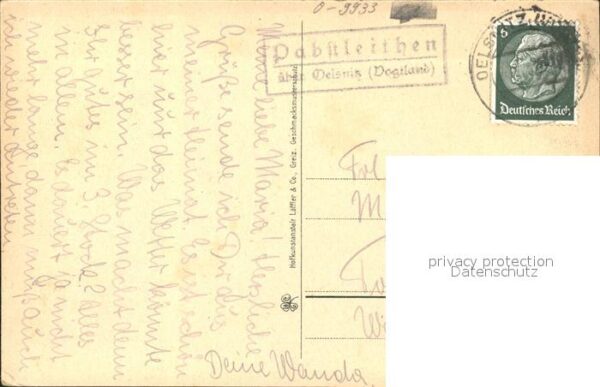 0-9933
Pabstleithen
über Oelsnitz (Vogtland)
OELSNITZ (VOGTL)
6
Deutsches Reich
Meine liebe Maria! Herzliche
Grüße sende ich Dir aus
meiner Heimat. Es ist schön
hier nur das Wetter könnte
besser sein. Was macht denn
Ihr gutes im 3 Stock? Alles
in allem. Es dauert ja nicht
mehr lange dann muß auch
ich wieder
Deine Wanda
Hofkunstanstalt Löffler & Co., Greiz. Geschmacksmusterschutz
Frl
M
Wi
privacy protection
Datenschutz